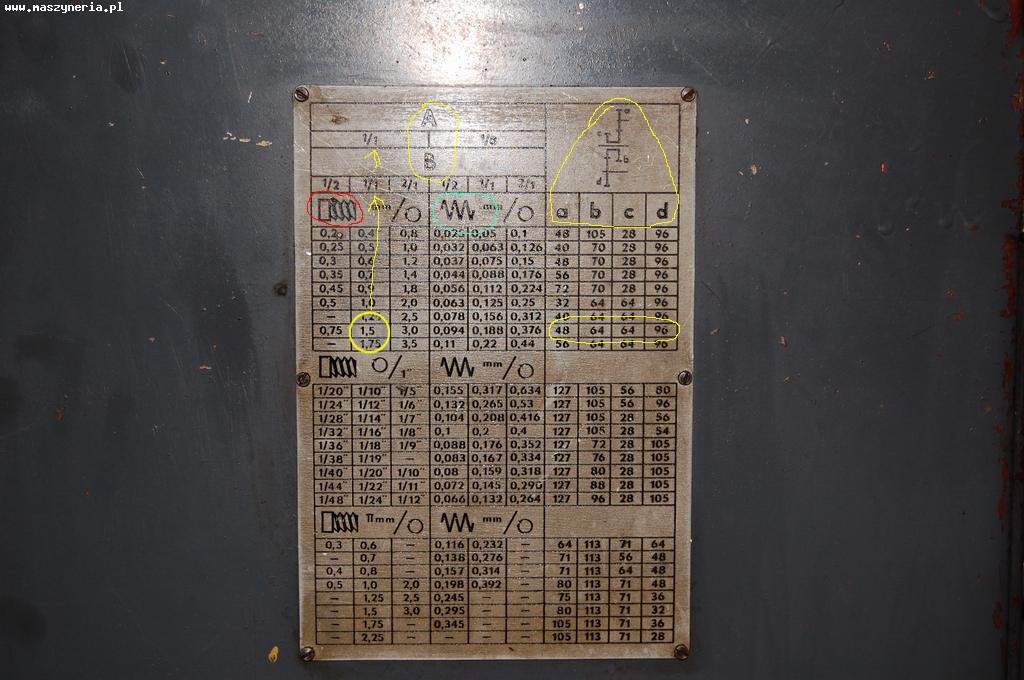 www.maszyneria.pl
A
1/1 1/8
B
1/2 1/1 2/1 1/2 1/1 2/1
mm/O mm/O a b c d
0,2 0,4 0,8 0,025 0,05 0,1 48 105 28 96
0,25 0,5 1,0 0,032 0,063 0,126 40 70 28 96
0,3 0,6 1,2 0,037 0,075 0,15 48 70 28 96
0,35 0,7 1,4 0,044 0,088 0,176 56 70 28 96
0,45 0,9 1,8 0,056 0,112 0,224 72 70 28 96
0,5 1,0 2,0 0,063 0,125 0,25 32 64 64 96
– 1,25 2,5 0,078 0,156 0,312 40 64 64 96
0,75 1,5 3,0 0,094 0,188 0,376 48 64 64 96
– 1,75 3,5 0,11 0,22 0,44 56 64 64 96
O/1" mm/O
1/20" 1/10" 1/5" 0,155 0,317 0,634 127 105 56 80
1/24" 1/12" 1/6" 0,132 0,265 0,53 127 105 56 96
1/28" 1/14" 1/7" 0,104 0,208 0,416 127 105 28 56
1/32" 1/16" 1/8" 0,1 0,2 0,4 127 105 28 54
1/36" 1/18" 1/9" 0,088 0,176 0,352 127 72 28 105
1/38" 1/19" – 0,083 0,167 0,334 127 76 28 105
1/40" 1/20" 1/10" 0,08 0,159 0,318 127 80 28 105
1/44" 1/22" 1/11" 0,072 0,145 0,290 127 88 28 105
1/48" 1/24" 1/12" 0,066 0,132 0,264 127 96 28 105
πmm/O mm/O
0,3 0,6 – 0,116 0,232 – 64 113 71 64
– 0,7 – 0,138 0,276 – 71 113 56 48
0,4 0,8 – 0,157 0,314 – 71 113 64 48
0,5 1,0 2,0 0,198 0,392 – 80 113 71 48
– 1,25 2,5 0,245 – – 75 113 71 36
– 1,5 3,0 0,295 – – 80 113 71 32
– 1,75 – 0,345 – – 105 113 71 36
– 2,25 – – – – 105 113 71 28